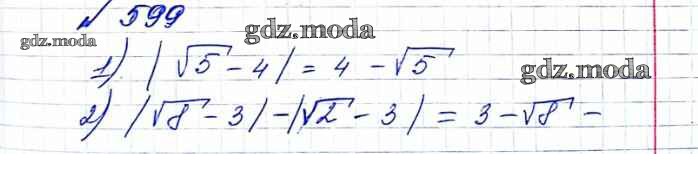 № 599
gdz.moda
gdz.moda
1) |√5 - 4| = 4 - √5
gdz.moda
2) |√8 - 3| - |√2 - 3| = 3 - √8 -